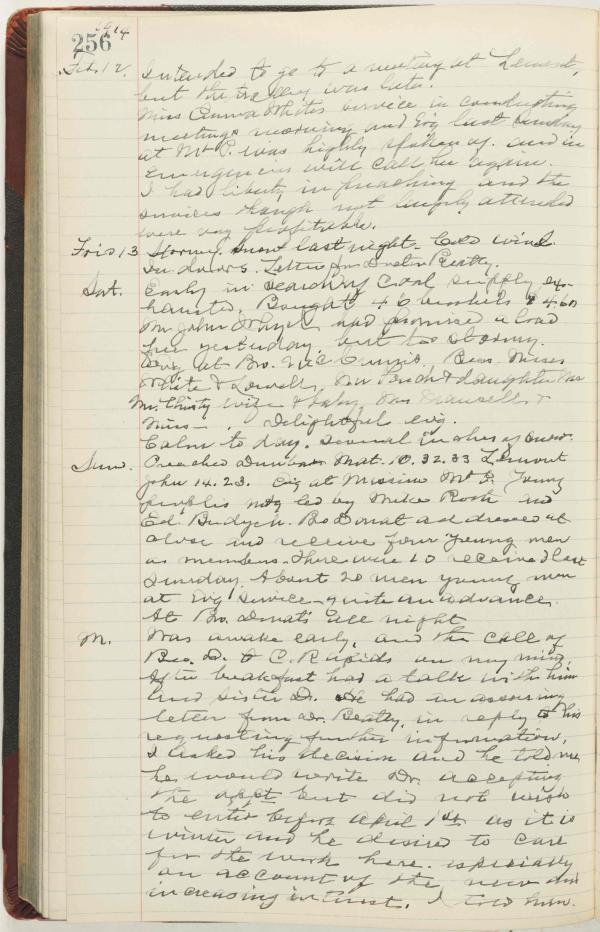 1914
256
Feb. 12. Intended to go to a meeting at Lemont,
but the trolley was late.
Miss Anna Whites service in conducting
meetings morning and Evg last Sunday
at Mt P. was highly spoken of. and in
emergencies will call her again.
I had liberty in preaching and the
services though not largely attended
were very profitable.
Frid 13 Stormy. Snow last night. Cold wind.
In doors. Letter from Beatty.
Sat. Early in search of Coal supply ex-
hausted. Bought 46 bushels $4.60
Mr John had promised a load
here yesterday but to stormy.
Evg at Bro. Misses
White & Lowells, Mr & daughter
Mr. Christy wife & baby, Mrs Mansell, &
Miss — . Delightful evg.
Calm to day. Several inches of snow.
Sun. Preached Dunbar Mat. 10. 32. 33 Lemont
John 14. 23. Evg at Mission Mt P. Young
peoples mtg led by Mike and
Ed. Bro Donat addressed at
close and receive four young men
as members. There were 10 received last
Sunday. About 20 men young men
at Evg service — quite an advance.
At Bro. Donats all night
M. Was awake early, and the call of
Bro. D. to C. Rapids on my mind.
After breakfast had a talk with him
and Sister D. He had an assuring
letter from Dr. Beatty, in reply to his
requesting further information,
I asked his decision and he told me
he would write Dr. accepting
the appt but did not wish
to enter before April 1st as it is
winter and he desired to care
for the work here. especially
on account of the new and
increasing interest. I told him.